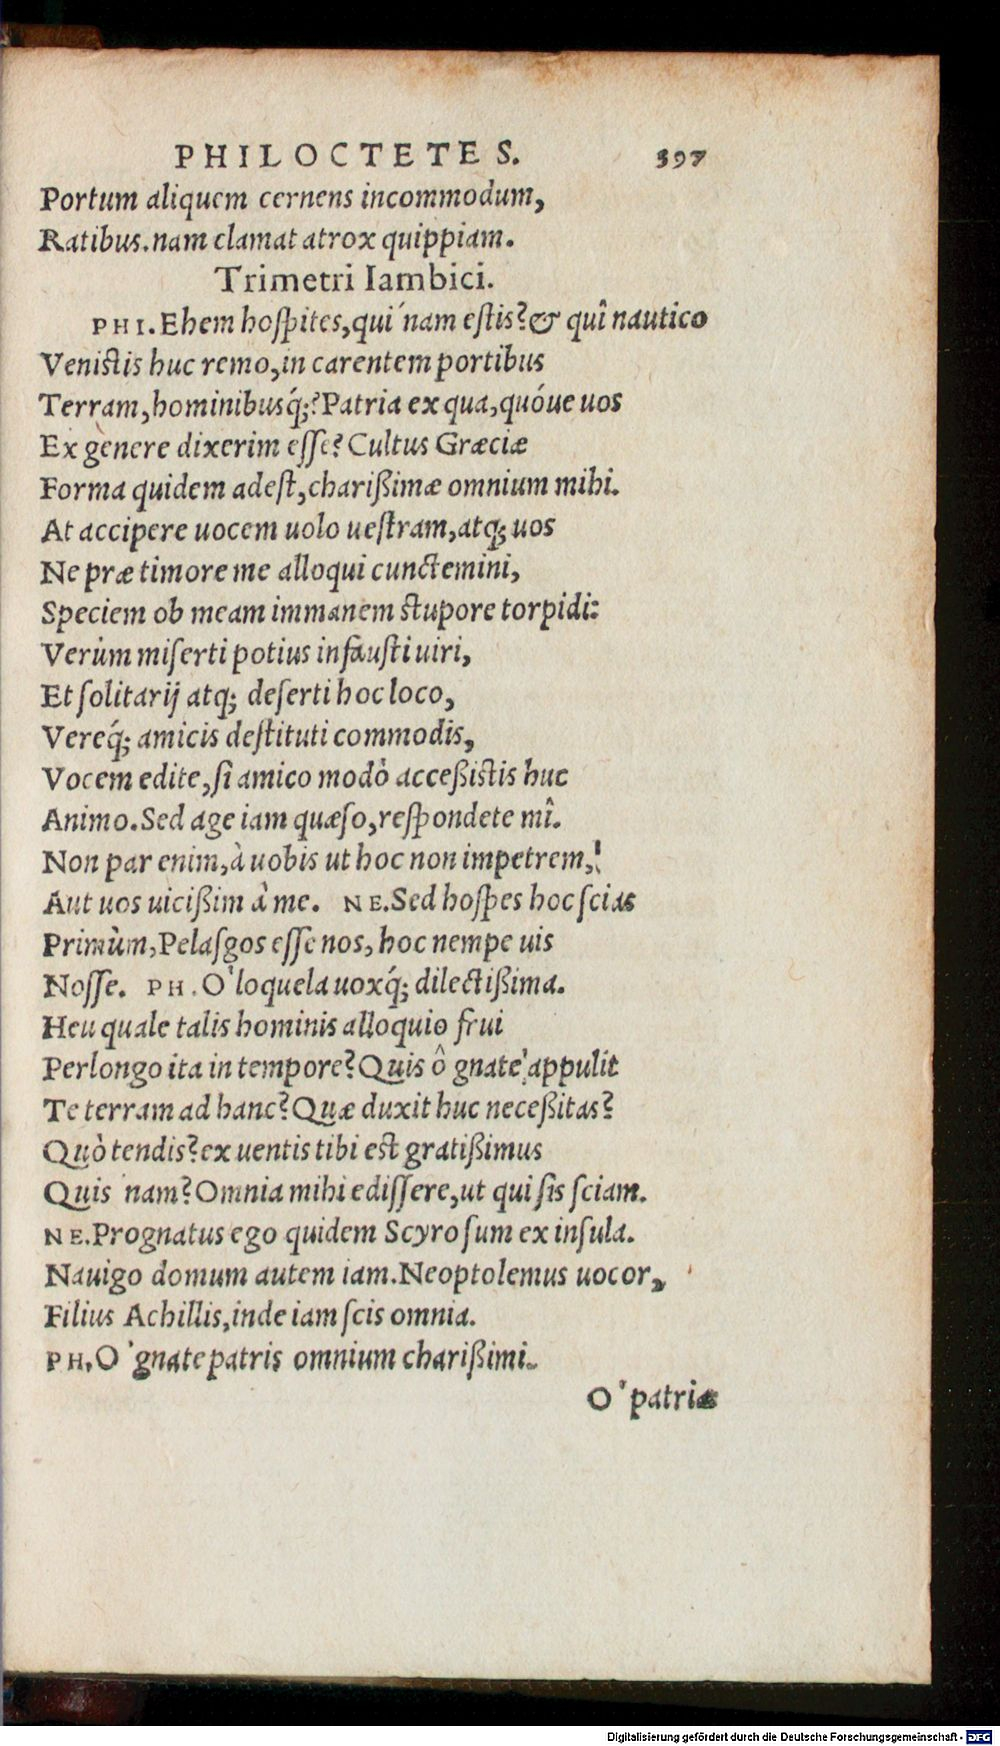 PHILOCTETES. 397
Portum aliquem cernens incommodum,
Ratibus. nam clamat atrox quippiam.
Trimetri Iambici.
PHI. Ehem hoſpites, qui´nam eſtis? & quî nautico
Veniſtis huc remo, in carentem portibus
Terram, hominibusq́;? Patria ex qua, quóue uos
Ex genere dixerim eſſe? Cultus Græciæ
Forma quidem adeſt, chariſſimæ omnium mihi.
At accipere uocem uolo ueſtram, atq; uos
Ne præ timore me alloqui cunctemini,
Speciem ob meam immanem ſtupore torpidi:
Verùm miſerti potius infauſti uiri,
Et ſolitarij atq; deſerti hoc loco,
Vereq́; amicis deſtituti commodis,
Vocem edite, ſi amico modò acceßiſtis huc
Animo. Sed age iam quæſo, reſpondete mî.
Non par enim, à uobis ut hoc non impetrem,
Aut uos uicißim à me. NE. Sed hoſpes hoc ſcias
Primùm, Pelaſgos eſſe nos, hoc nempe uis
Noſſe. PH. O' loquela uoxq́; dilectißima.
Heu quale talis hominis alloquio frui
Perlongo ita in tempore? Quis ô gnate appulit
Te terram ad hanc? Quæ duxit huc neceßitas?
Quò tendis? ex uentis tibi eſt gratißimus
Quis nam? Omnia mihi ediſſere, ut qui ſis ſciam.
NE. Prognatus ego quidem Scyro ſum ex inſula.
Nauigo domum autem iam. Neoptolemus uocor,
Filius Achillis, inde iam ſcis omnia.
PH. O' gnate patris omnium charißimi.
O' patriæ
Digitalisierung gefördert durch die Deutsche Forschungsgemeinschaft - DFG